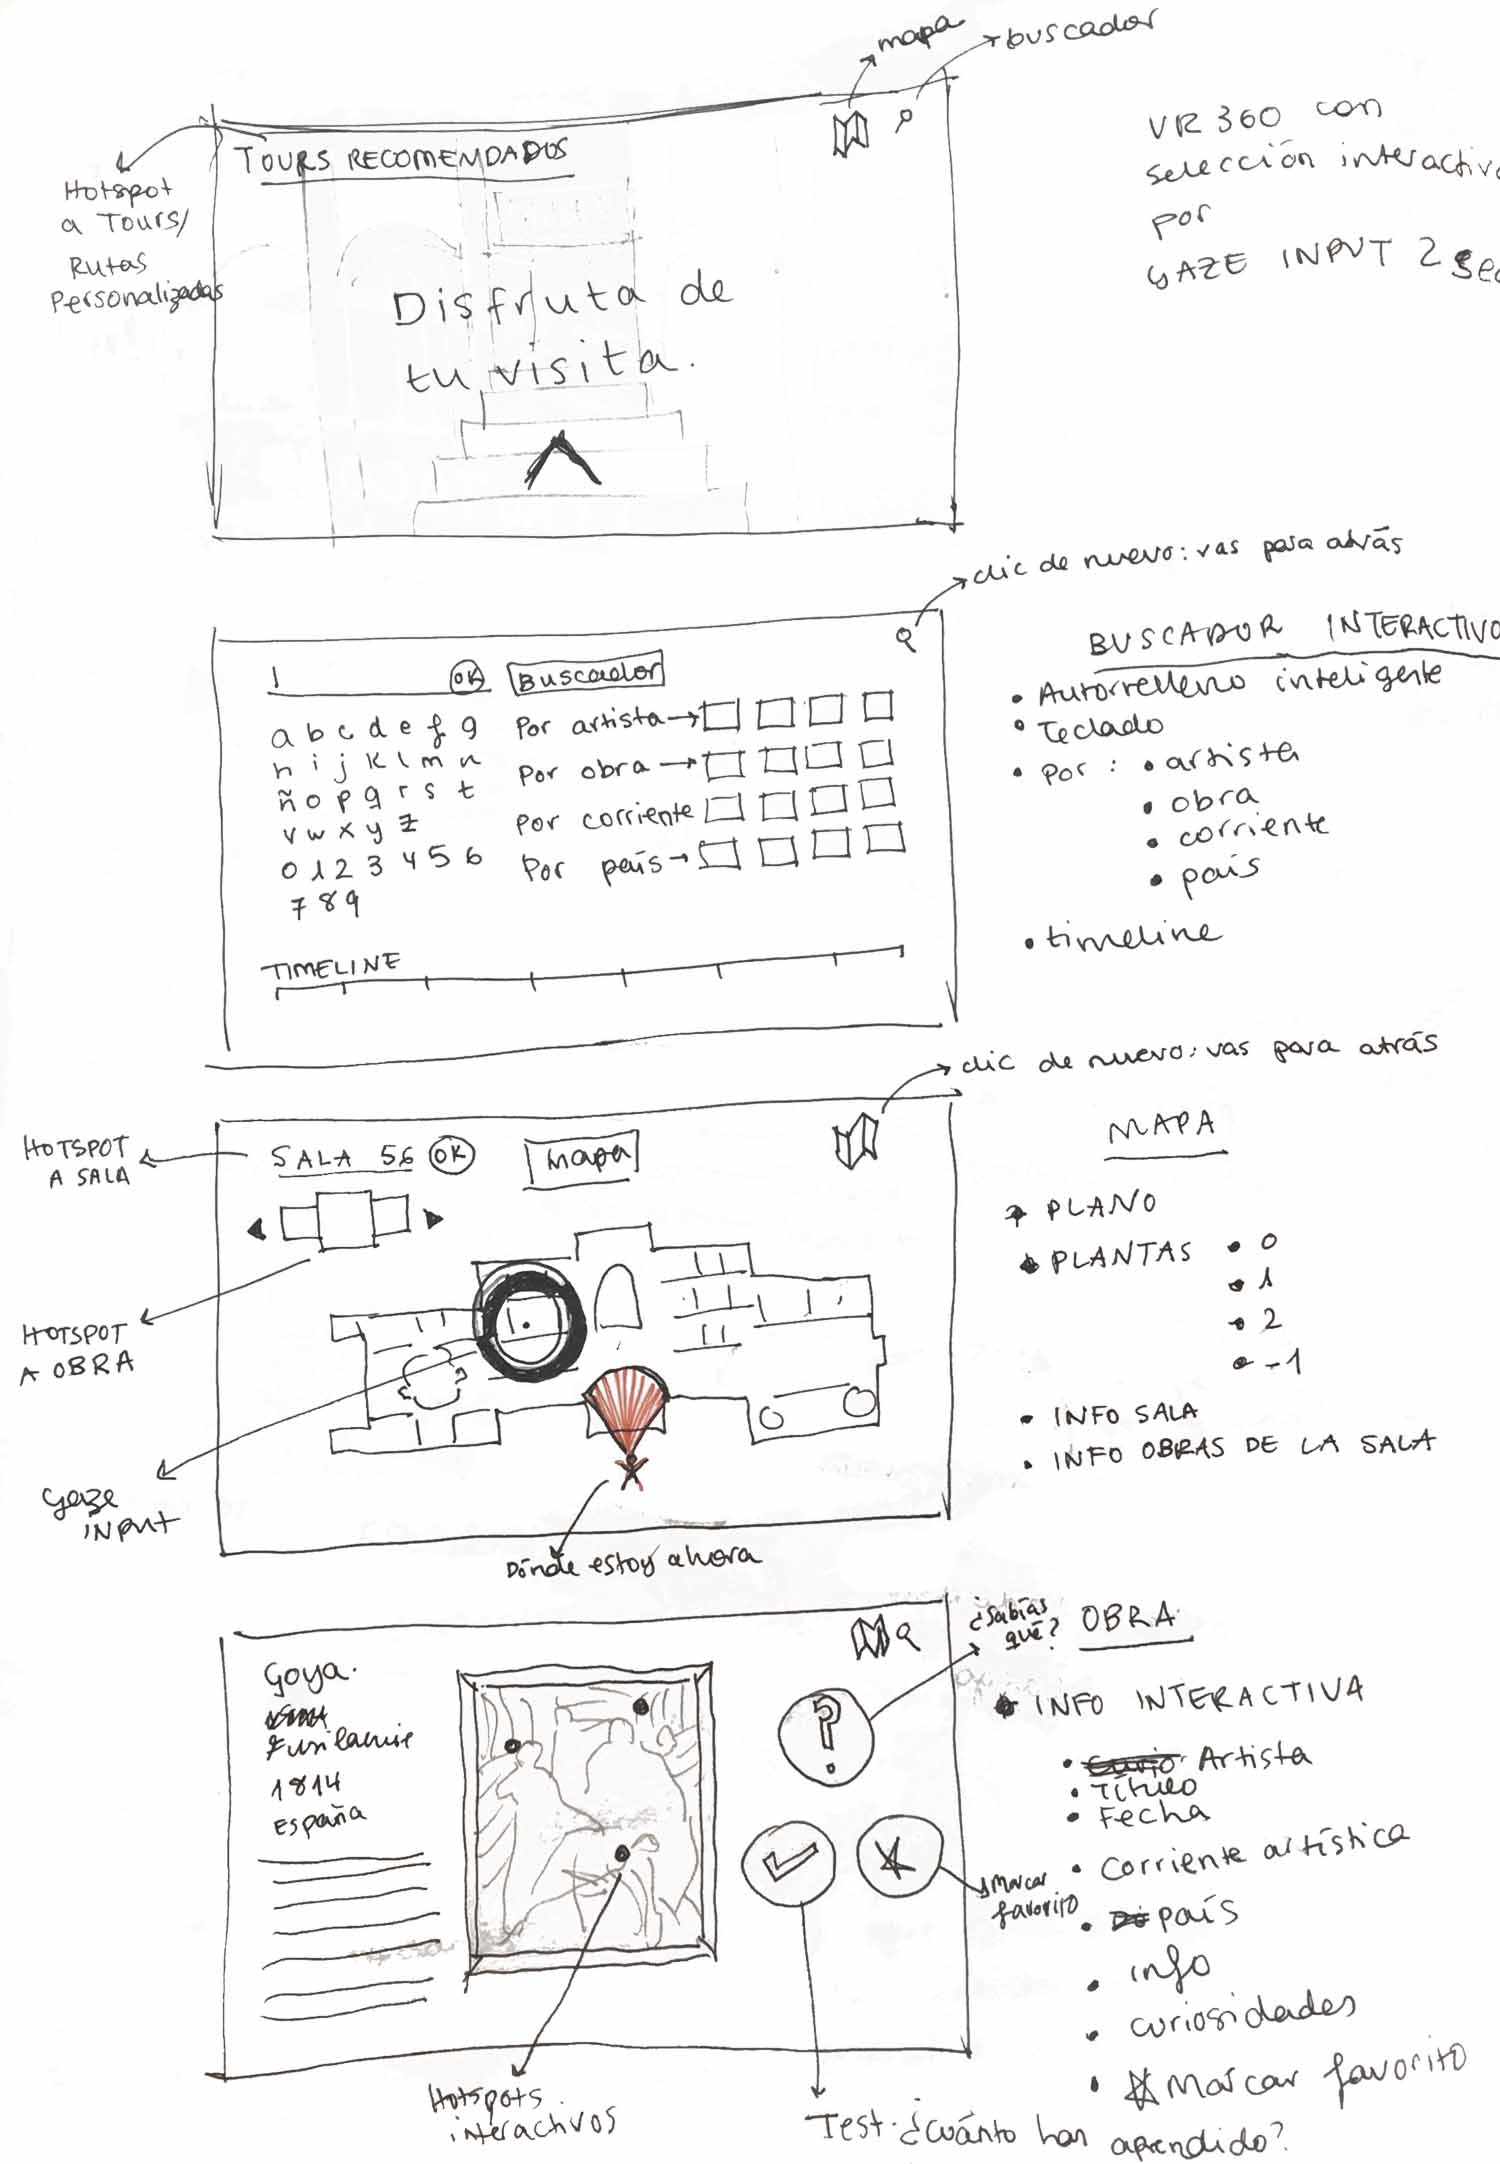 mapa
buscador
TOURS RECOMENDADOS
Hotspot
a Tours/
Rutas
Personalizadas
Disfruta de
tu visita.
VR 360 con
selección interactiva
por
GAZE INPUT 2 sec
clic de nuevo: vas para atrás
OK
Buscador
a b c d e f g
h i j k l m n
ñ o p q r s t
v w x y z
0 1 2 3 4 5 6
7 8 9
Por artista
Por obra
Por corriente
Por país
TIMELINE
BUSCADOR INTERACTIVO
• Autorrelleno inteligente
• Teclado
• Por: • artista
• obra
• corriente
• país
• timeline
clic de nuevo: vas para atrás
HOTSPOT
A SALA
SALA 56 OK
Mapa
HOTSPOT
A OBRA
Gaze
INPUT
Dónde estoy ahora
MAPA
PLANO
• PLANTAS • 0
• 1
• 2
• -1
• INFO SALA
• INFO OBRAS DE LA SALA
Goya.
1814
España
¿Sabías
qué?
?
Marcar
favorito
Hotspots
interactivos
Test. ¿cuánto han aprendido?
OBRA
• INFO INTERACTIVA
• Artista
• Título
• Fecha
• Corriente artística
• país
• info
• curiosidades
• Marcar favorito